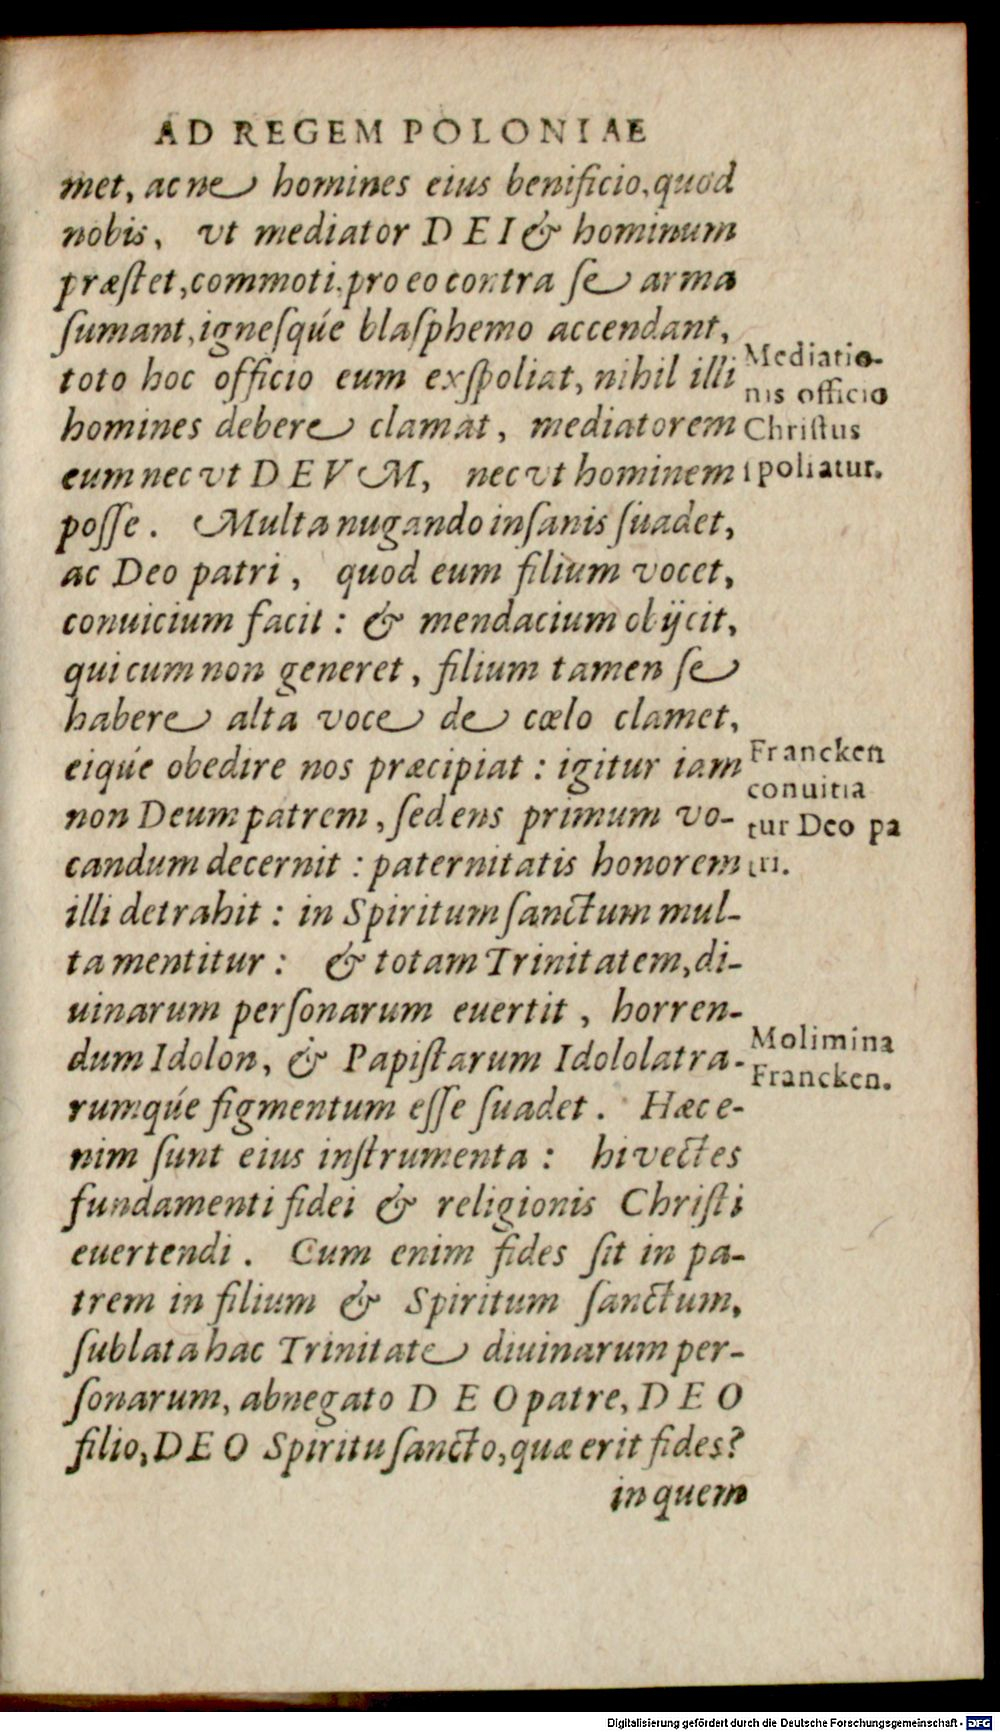 AD REGEM POLONIAE
met, ac ne homines eius benificio, quod
nobis, vt mediator DEI & hominum
præſtet, commoti. pro eo contra ſe arma
ſumant, igneſqúe blaſphemo accendant,
toto hoc officio eum exſpoliat, nihil illi
homines debere clamat, mediatorem
eum nec vt DEVM, nec vt hominem
poſſe. Multa nugando inſanis ſuadet,
ac Deo patri, quod eum filium vocet,
conuicium facit: & mendacium obijcit,
qui cum non generet, filium tamen ſe
habere alta voce de cœlo clamet,
eiqúe obedire nos præcipiat: igitur iam
non Deum patrem, ſed ens primum vo-
candum decernit: paternitatis honorem
illi detrahit: in Spiritum ſanctum mul-
ta mentitur: & totam Trinitatem, di-
uinarum perſonarum euertit, horren-
dum Idolon, & Papiſtarum Idololatra-
rumqúe figmentum eſſe ſuadet. Hæc e-
nim ſunt eius inſtrumenta: hi vectes
fundamenti fidei & religionis Chriſti
euertendi. Cum enim fides ſit in pa-
trem in filium & Spiritum ſanctum,
ſublata hac Trinitate diuinarum per-
ſonarum, abnegato DEO patre, DEO
filio, DEO Spiritu ſancto, quæ erit fides?
in quem
Mediatio-
nis officio
Chriſtus
ſpoliatur.
Francken
conuitia
tur Deo pa
tri.
Molimina
Francken.
Digitalisierung gefördert durch die Deutsche Forschungsgemeinschaft - DFG